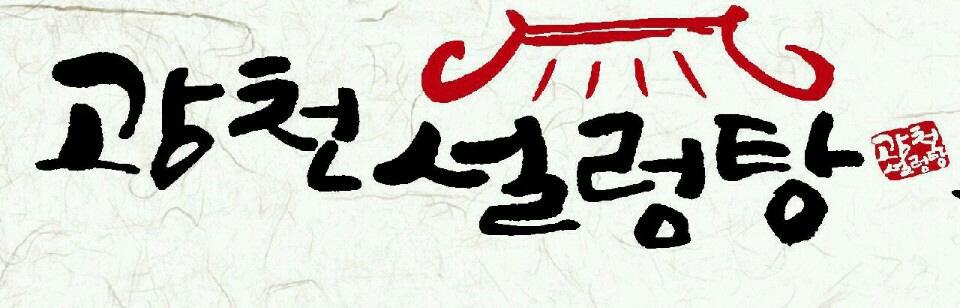 광천설렁탕
광천
설렁탕